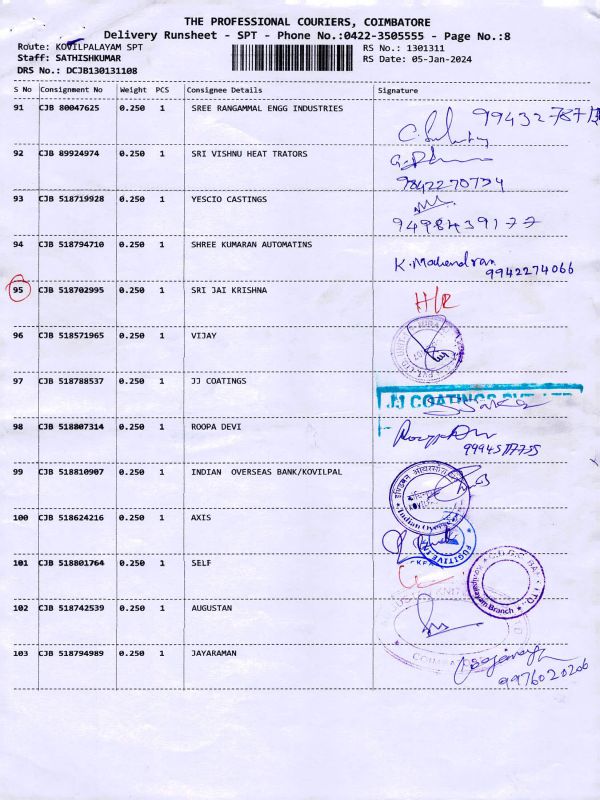 THE PROFESSIONAL COURIERS, COIMBATORE
Delivery Runsheet - SPT - Phone No.:0422-3505555 - Page No.:8
Route: KOVILPALAYAM SPT
Staff: SATHISHKUMAR
DRS No.: DCJB130131108
RS No.: 1301311
RS Date: 05-Jan-2024
S No Consignment No Weight PCS Consignee Details Signature
91 CJB 80047625 0.250 1 SREE RANGAMMAL ENGG INDUSTRIES
92 CJB 89924974 0.250 1 SRI VISHNU HEAT TRATORS
93 CJB 518719928 0.250 1 YESCIO CASTINGS
94 CJB 518794710 0.250 1 SHREE KUMARAN AUTOMATINS K. Mahendran
9942274066
95 CJB 518702995 0.250 1 SRI JAI KRISHNA H/R
96 CJB 518571965 0.250 1 VIJAY
97 CJB 518788537 0.250 1 JJ COATINGS JJ COATINGS PVT LTD
98 CJB 518807314 0.250 1 ROOPA DEVI
99 CJB 518810907 0.250 1 INDIAN OVERSEAS BANK/KOVILPAL
100 CJB 518624216 0.250 1 AXIS
101 CJB 518801764 0.250 1 SELF
Kovilpalayam Branch
102 CJB 518742539 0.250 1 AUGUSTAN
103 CJB 518794989 0.250 1 JAYARAMAN
9976020206